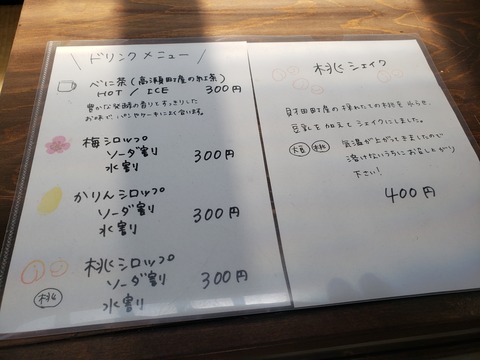 \ ドリンクメニュー /
べに茶(高瀬町産の紅茶)
HOT / ICE 300円
豊かな発酵の香りとすっきりした
お味で、パンやケーキによく合います。
梅シロップ
ソーダ割り 300円
水割り
かりんシロップ
ソーダ割り 300円
水割り
桃シロップ
ソーダ割り 300円
水割り
桃
桃シェイク
財田町産の採れたての桃を凍らせ、
豆乳を加えてシェイクにしました。
大豆 桃
気温が上がってきましたので
溶けないうちにお召し上がり
下さい!
400円